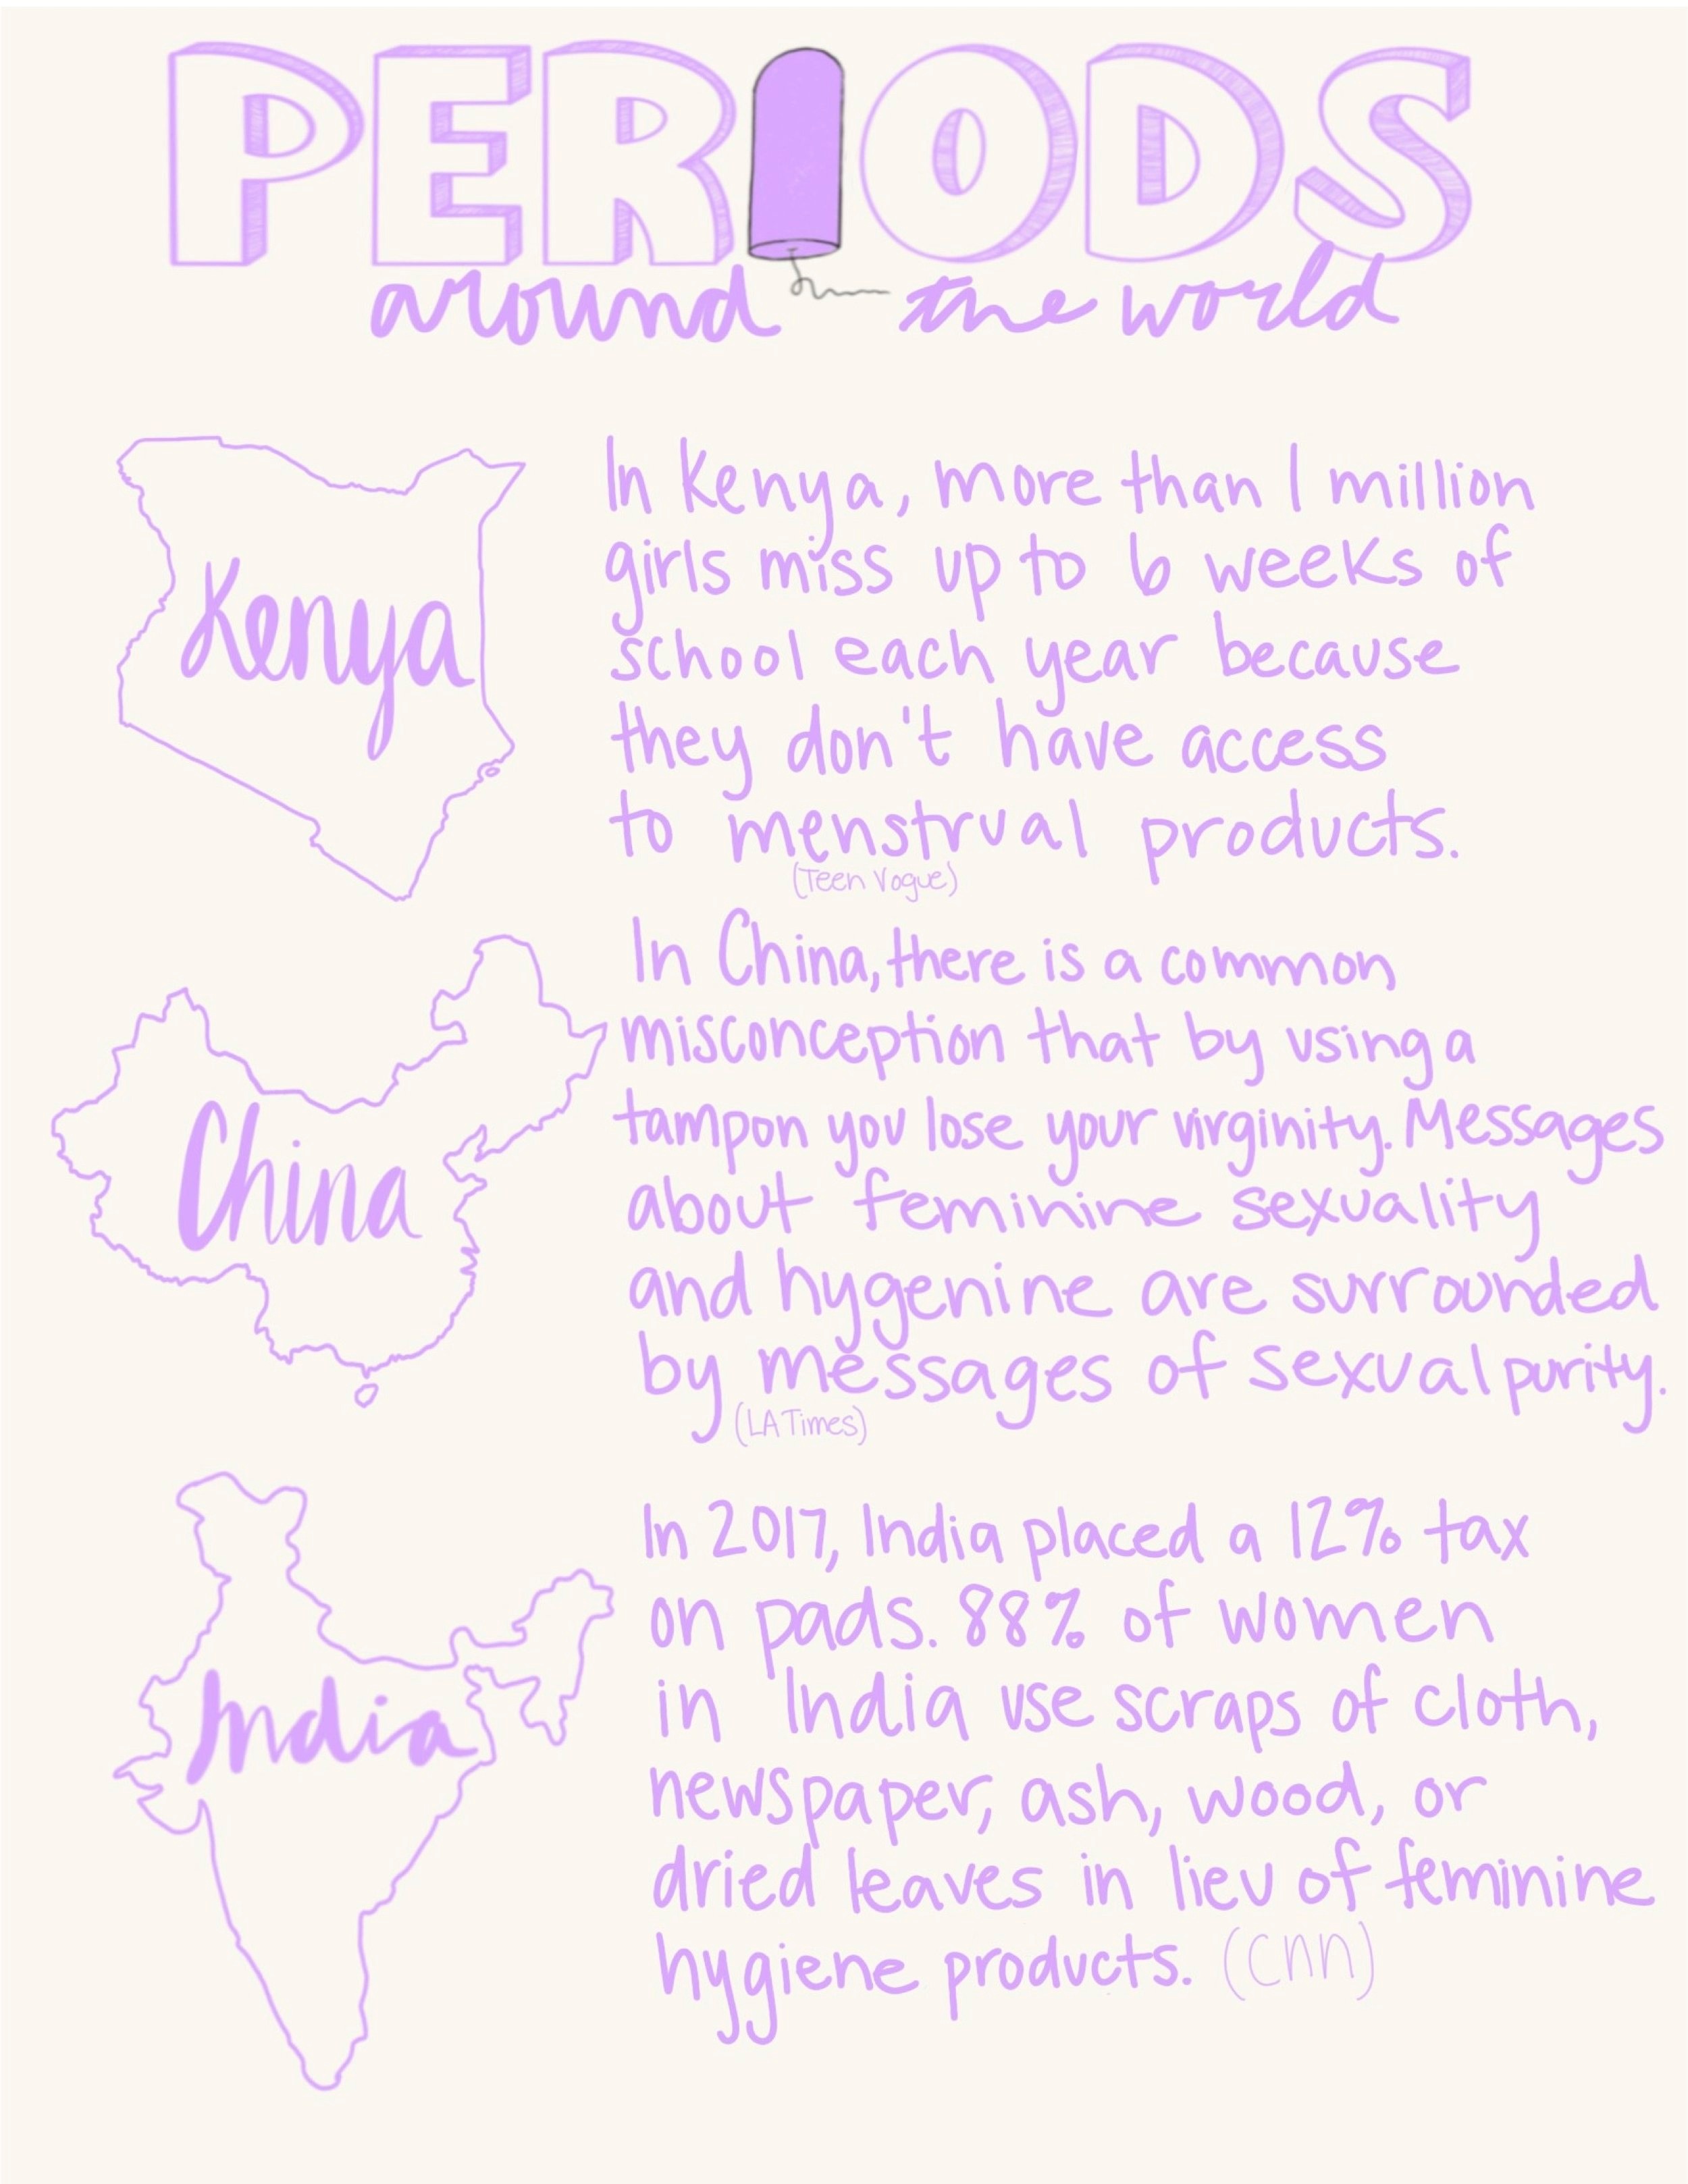 PERIODS
around the world
Kenya
In Kenya, more than 1 million
girls miss up to 6 weeks of
school each year because
they don't have access
to menstrual products.
(Teen Vogue)
China
In China, there is a common
misconception that by using a
tampon you lose your virginity. Messages
about feminine sexuality
and hygenine are surrounded
by messages of sexual purity.
(LA Times)
India
In 2017, India placed a 12% tax
on pads. 88% of women
in India use scraps of cloth,
newspaper, ash, wood, or
dried leaves in lieu of feminine
hygiene products. (cnn)